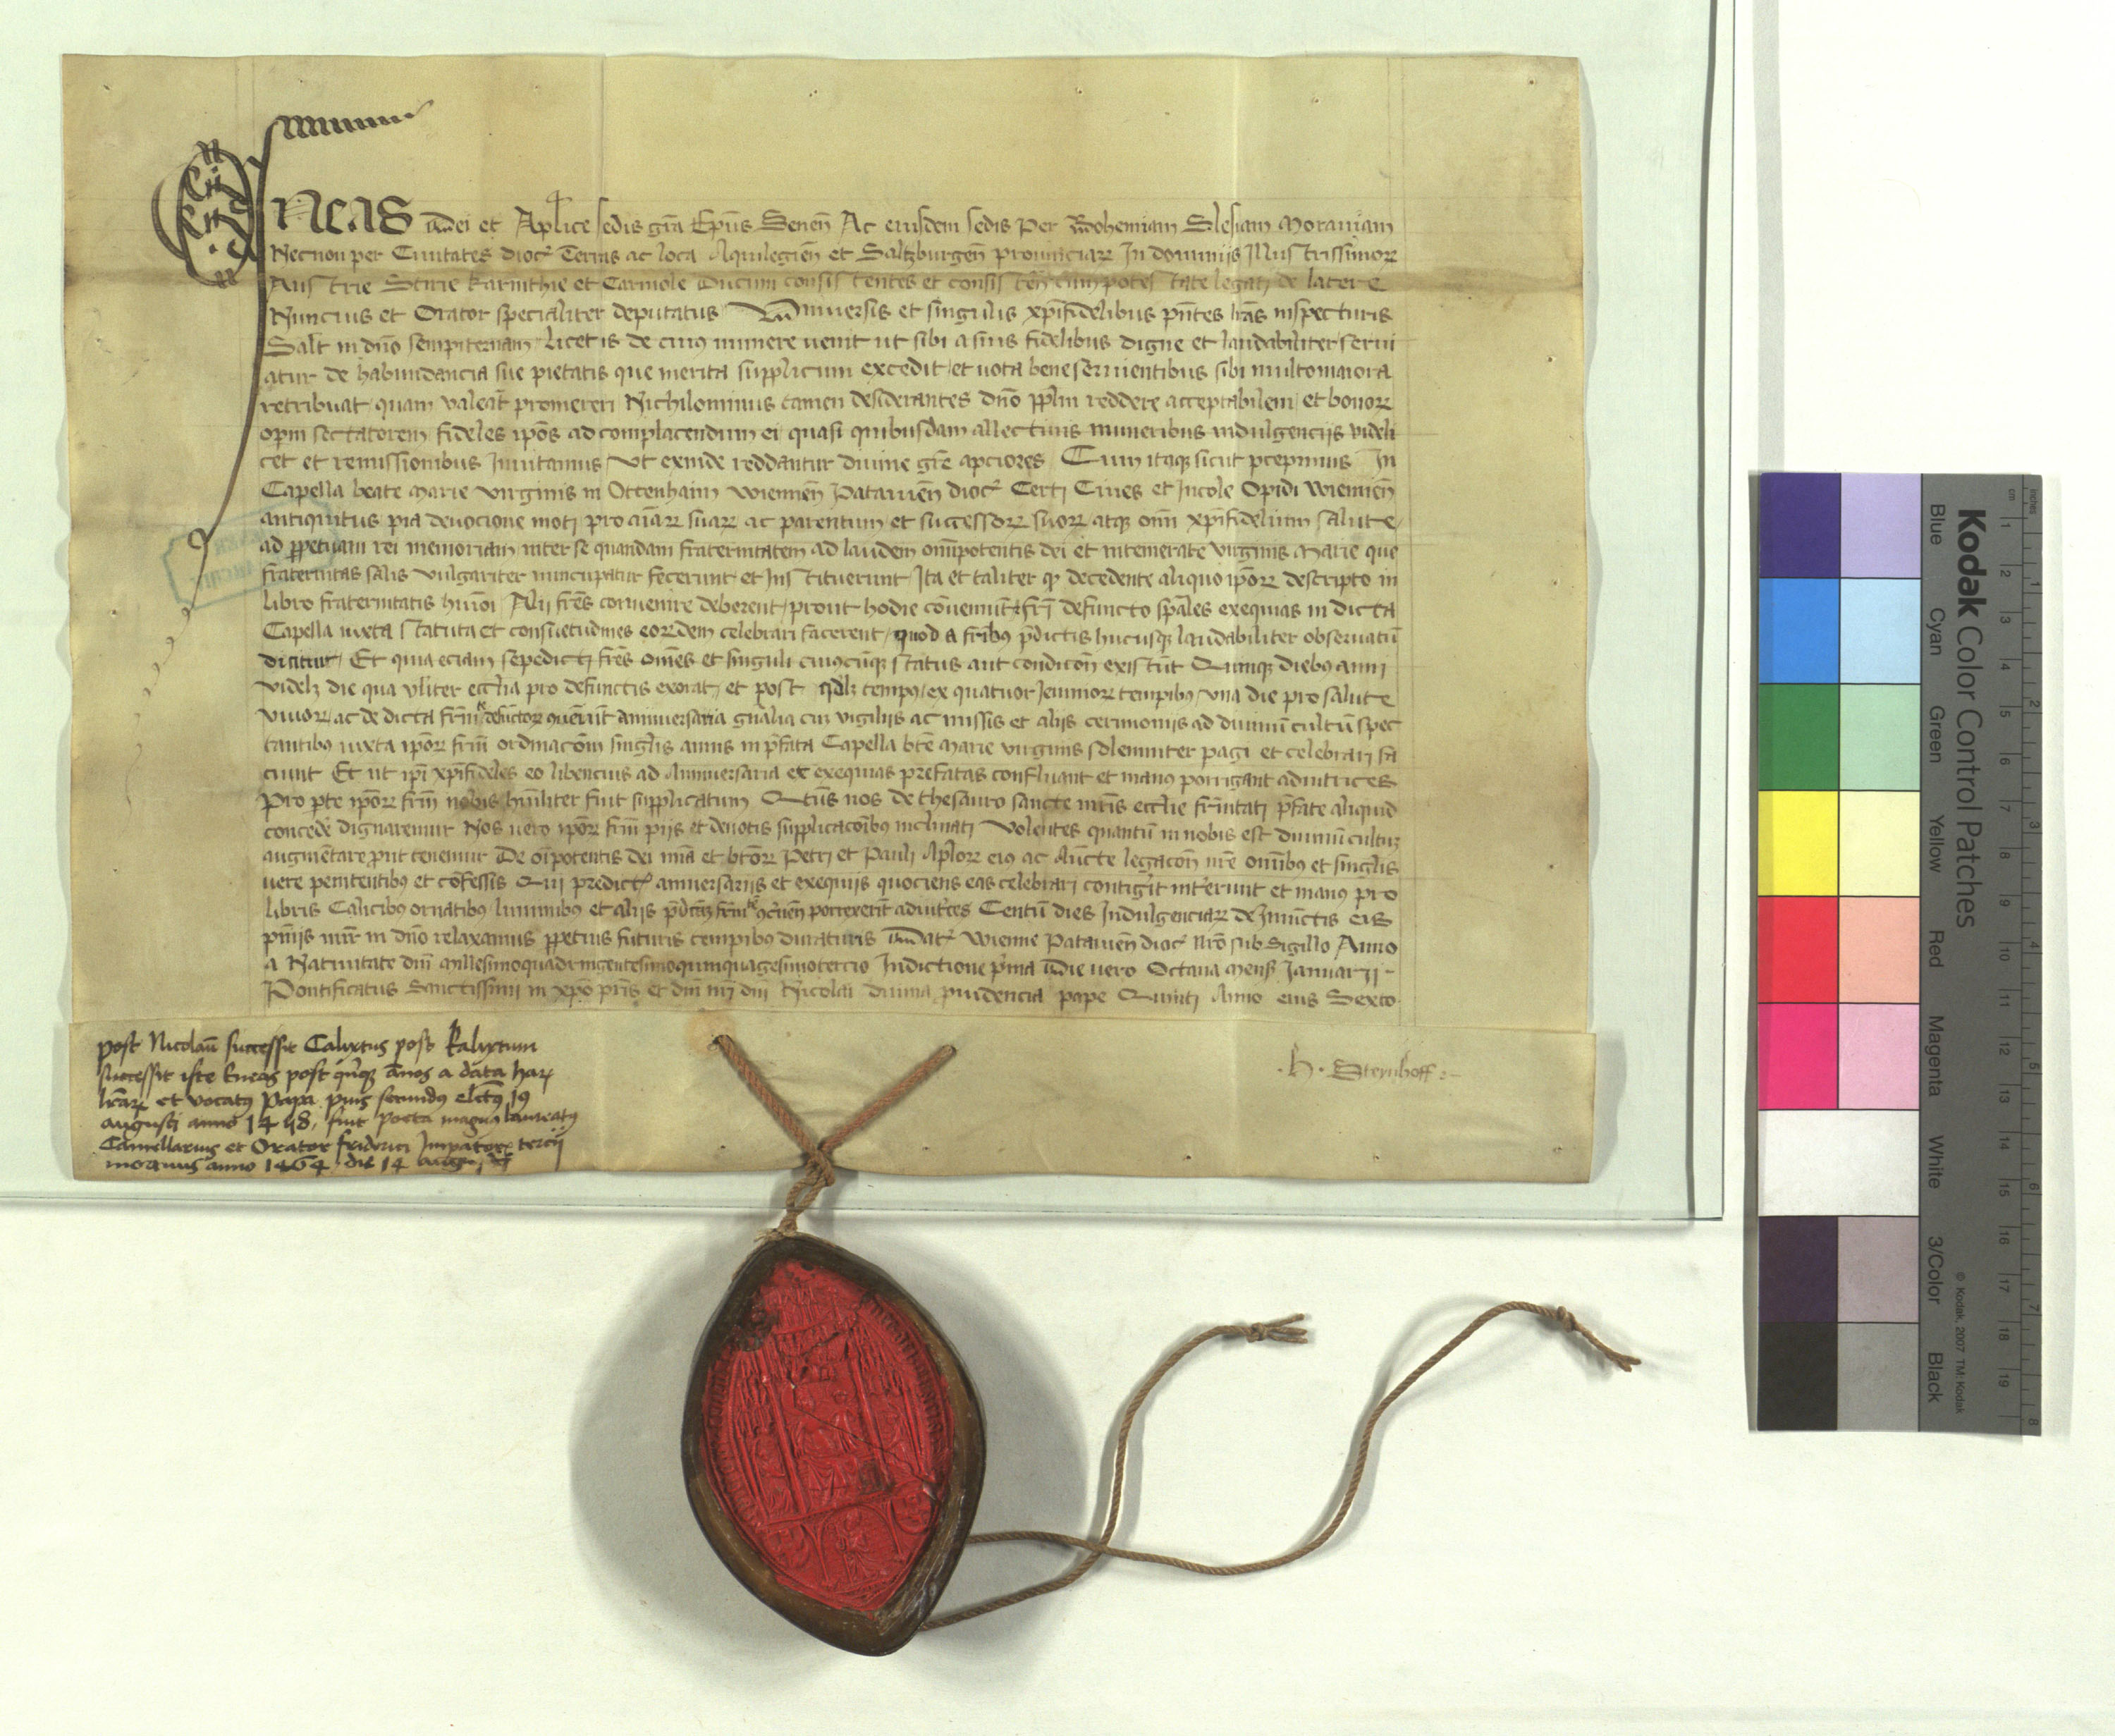 Eneas Dei et Aplice sedis gra Epus Senen Ac eiusdem sedis Per Bohemiam Slesiam Morauiam
Necnon per Ciuitates dioc Terras ac loca Aquilegien et Saltzburgen prouinciarum In dominijs Illustrissimor
Austrie Stirie Karinthie et Carniole Ducum consistentes et consisten cum potestate legati de latere
Nuncius et Orator specialiter deputatus Vniuersis et singulis xpifidelibus pntes lras inspecturis
Salt in dno sempiternam Licet is de cuius munere uenit ut sibi a suis fidelibus digne et laudabiliter serui
atur de habundancia sue pietatis que merita supplicum excedit et uota bene seruientibus sibi multo maiora
retribuat quam valeat promereri Nichilominus tamen desiderantes dno pplm reddere acceptabilem et bonor
opm sectatorem fideles ipos ad complacendum ei quasi quibusdam allectiuis muneribus indulgencijs videli
cet et remissionibus Inuitamus Vt exinde reddantur diuine gre apciores Cum itaq sicut pcepimus In
Capella beate Marie virginis in Ottenhaim Wiennen Patauien dioc Certi Ciues et Incole Opidi Wiennen
antiquitus pia deuocione moti pro aiar suar ac parentum et successor suor atq oim xpifidelium salute
ad ppetuam rei memoriam inter se quandam fraternitatem ad laudem omipotentis dei et intemerate virginis Marie que
fraternitas salis vulgariter nuncupatur fecerunt et Instituerunt Ita et taliter q decedente aliquo ipor descripto in
libro fraternitatis huioi Alij fres conuenire deberent prout hodie coueniut fri defuncto spales exequias in dicta
Capella iuxta statuta et consuetudines eordem celebrari facerent quod a fribus pdictis hucusq laudabiliter obseruatu
dicitur Et quia eciam sepedicti fres omes et singuli cuiuscuq status aut condicon existut Quinq diebus anni
videlz die qua vliter ecclia pro defunctis exorat et post qdlz tempus ex quatuor Ieiunior tempibus vna die pro salute
viuor ac de dicta frnitate defuctor queniut anniuersaria gnalia cu vigilijs ac missis et alijs cerimonijs ad diuinu cultu spec
tantibus iuxta ipor frm ordinacom singlis annis in pfata Capella bte Marie virginis solemniter pagi et celebrari fa
ciunt Et ut ipi xpifideles eo libencius ad Anniuersaria et exequias prefatas confluant et manus porrigant adiutrices
Pro pte ipor frm nobis huiliter fuit supplicatum Qtus nos de thesauro sancte mris ecclie frnitati pfate aliquid
concede dignaremur Nos uero ipor frm pijs et deuotis supplicacoibus inclinati Volentes quantu in nobis est diuinu cultuz
augmetare put tenemur De oipotentis dei mia et btor Petri et Pauli Aplor eius ac Aucte legacon nre omibus et singlis
uere penitentibus et cofessis Qui predict anniuersarijs et exequijs quociens eas celebrari contigit interunt et manus pro
libris Calicibus ornatibus luminibus et alijs porrexerit adiutces Centu dies Indulgenciar de Iniuctis eis
pnijs mir in dno relaxamus ppetuis futuris tempibus duraturis Dat Wienne Patauien dioc nro sub Sigillo Anno
a Natiuitate dni Millesimoquadringentesimoquinquagesimotercio Indictione pma Die uero Octaua Mens Januarij
Pontificatus Sanctissimi in xpo pris et dni nri dni Nicolai diuina puidencia pape Quinti Anno eius Sexto
post Nicolau successit Calixtus post Kalixtum
successit iste Eneas post quiq annos a data har
lrar et vocatus Papa pius secundus elctus 19
augusti anno 1458, fuit poeta magnus laureatus
Cancellarius et Orator friderici Impator tercij
mortuus anno 1464 die 14 augusti
. h . Sternhoff :-
Kodak Color Control Patches
© Kodak, 2007 TM: Kodak
Blue Cyan Green Yellow Red Magenta White 3/Color Black
cm 1 2 3 4 5 6 7 8 9 10 11 12 13 14 15 16 17 18 19
inches 1 2 3 4 5 6 7 8